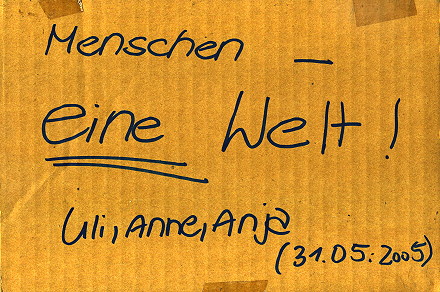 Menschen –
eine Welt!
Uli, Anne, Anja
(31.05.2005)